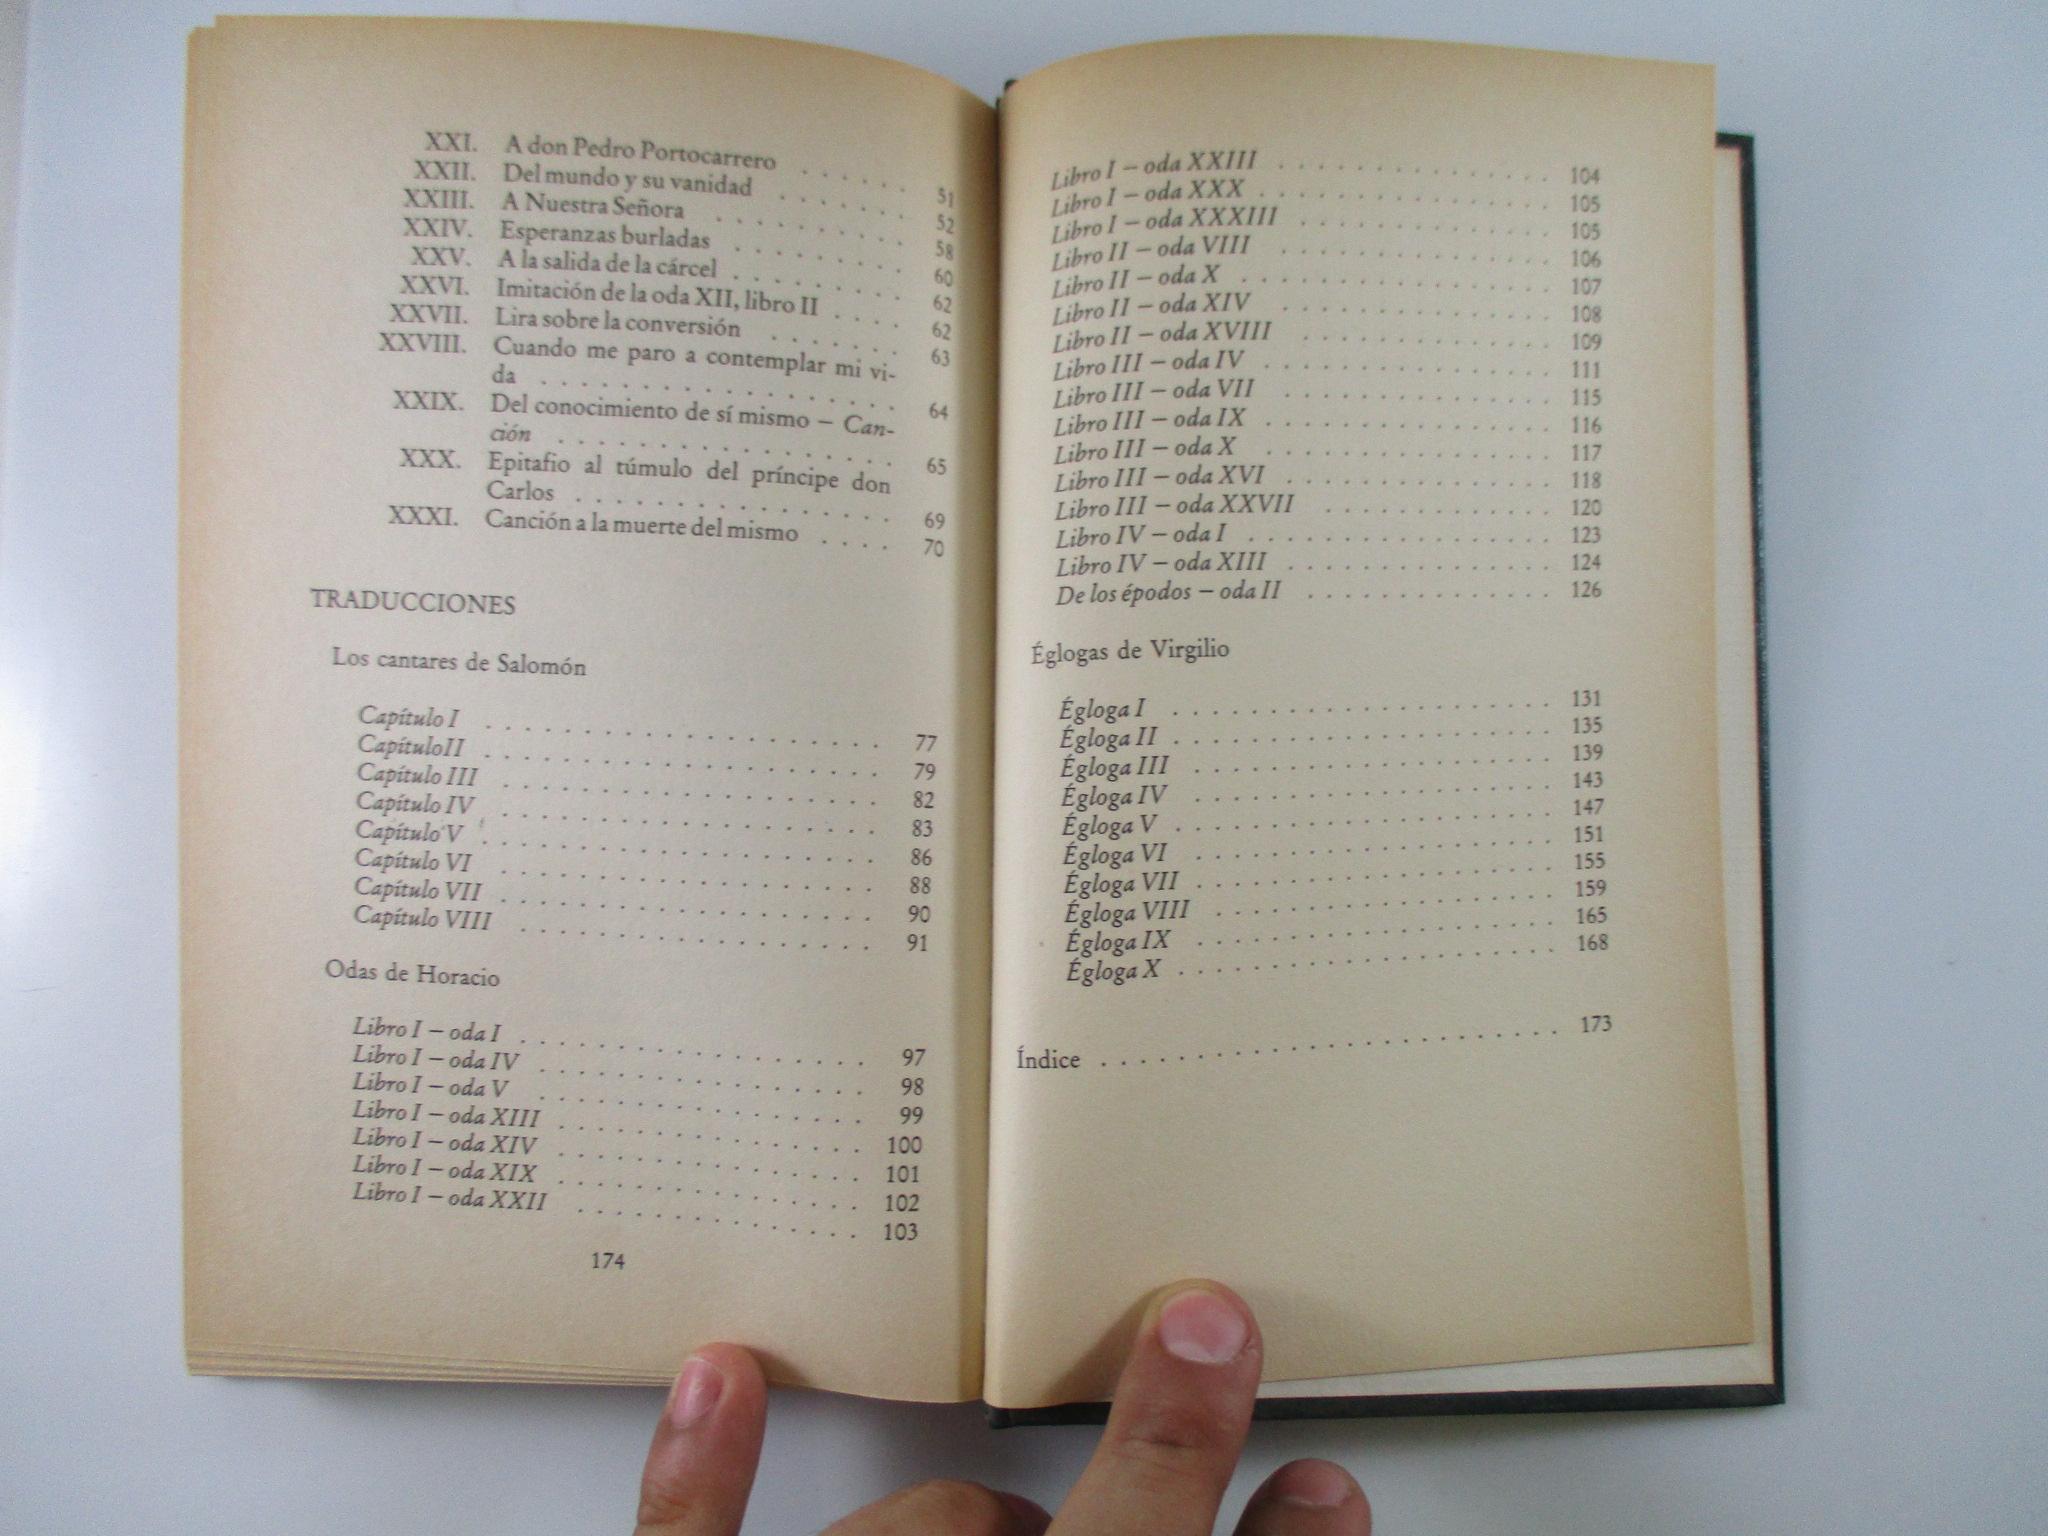 XXI. A don Pedro Portocarrero . . . . . . 51
XXII. Del mundo y su vanidad . . . . . . . 52
XXIII. A Nuestra Señora . . . . . . . . 58
XXIV. Esperanzas burladas . . . . . . . 60
XXV. A la salida de la cárcel . . . . . . . 62
XXVI. Imitación de la oda XII, libro II . . . . 62
XXVII. Lira sobre la conversión . . . . . . 63
XXVIII. Cuando me paro a contemplar mi vi-
da . . . . . . . . . . . . . . 64
XXIX. Del conocimiento de sí mismo – Can-
ción . . . . . . . . . . . . . 65
XXX. Epitafio al túmulo del príncipe don
Carlos . . . . . . . . . . . . . 69
XXXI. Canción a la muerte del mismo . . . . 70
TRADUCCIONES
Los cantares de Salomón
Capítulo I . . . . . . . . . . . . . . . . . . 77
CapítuloII . . . . . . . . . . . . . . . . . . 79
Capítulo III . . . . . . . . . . . . . . . . . 82
Capítulo IV . . . . . . . . . . . . . . . . . 83
Capítulo V . . . . . . . . . . . . . . . . . . 86
Capítulo VI . . . . . . . . . . . . . . . . . 88
Capítulo VII . . . . . . . . . . . . . . . . . 90
Capítulo VIII . . . . . . . . . . . . . . . . 91
Odas de Horacio
Libro I – oda I . . . . . . . . . . . . . . . . 97
Libro I – oda IV . . . . . . . . . . . . . . . 98
Libro I – oda V . . . . . . . . . . . . . . . 99
Libro I – oda XIII . . . . . . . . . . . . . . 100
Libro I – oda XIV . . . . . . . . . . . . . . 101
Libro I – oda XIX . . . . . . . . . . . . . . 102
Libro I – oda XXII . . . . . . . . . . . . . 103
174
Libro I – oda XXIII . . . . . . . . . . . . . 104
Libro I – oda XXX . . . . . . . . . . . . . . 105
Libro I – oda XXXIII . . . . . . . . . . . . 105
Libro II – oda VIII . . . . . . . . . . . . . 106
Libro II – oda X . . . . . . . . . . . . . . . 107
Libro II – oda XIV . . . . . . . . . . . . . 108
Libro II – oda XVIII . . . . . . . . . . . . 109
Libro III – oda IV . . . . . . . . . . . . . . 111
Libro III – oda VII . . . . . . . . . . . . . 115
Libro III – oda IX . . . . . . . . . . . . . . 116
Libro III – oda X . . . . . . . . . . . . . . 117
Libro III – oda XVI . . . . . . . . . . . . . 118
Libro III – oda XXVII . . . . . . . . . . . 120
Libro IV – oda I . . . . . . . . . . . . . . . 123
Libro IV – oda XIII . . . . . . . . . . . . . 124
De los épodos – oda II . . . . . . . . . . . . 126
Églogas de Virgilio
Égloga I . . . . . . . . . . . . . . . . . . 131
Égloga II . . . . . . . . . . . . . . . . . . 135
Égloga III . . . . . . . . . . . . . . . . . 139
Égloga IV . . . . . . . . . . . . . . . . . 143
Égloga V . . . . . . . . . . . . . . . . . . 147
Égloga VI . . . . . . . . . . . . . . . . . 151
Égloga VII . . . . . . . . . . . . . . . . . 155
Égloga VIII . . . . . . . . . . . . . . . . 159
Égloga IX . . . . . . . . . . . . . . . . . 165
Égloga X . . . . . . . . . . . . . . . . . . 168
Índice . . . . . . . . . . . . . . . . . . . . . 173